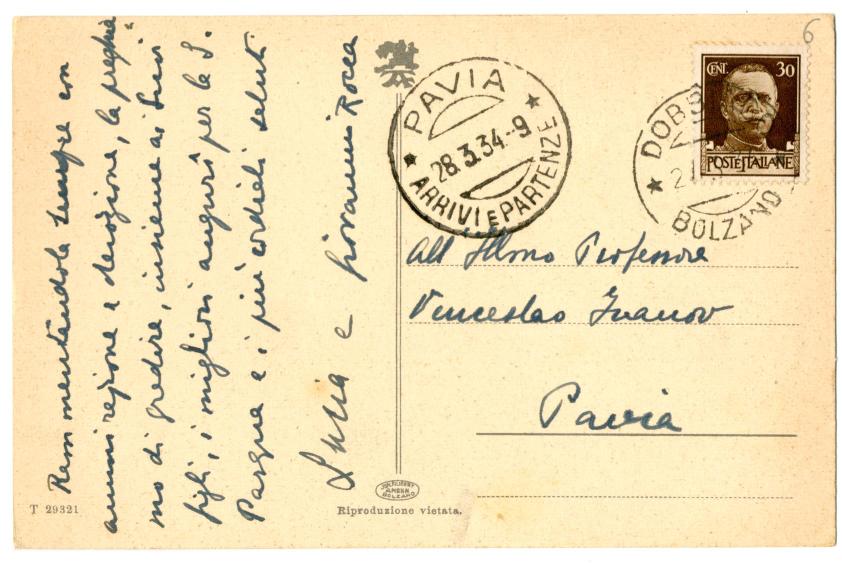 Rammentandola sempre con
ammirazione e devozione, la preghia-
mo di gradire, insieme ai Suoi
figli, i migliori auguri per la S.
Pasqua e i più cordiali saluti
Lucia e Giovanni Rocca
T 29321
Riproduzione vietata.
AMONN
BOLZANO
PAVIA
28.3.34.-9
ARRIVI E PARTENZE
6
CENT. 30
POSTE ITALIANE
DOBB
BOLZANO
All' Illmo Professore
Venceslao Ivanov
Pavia